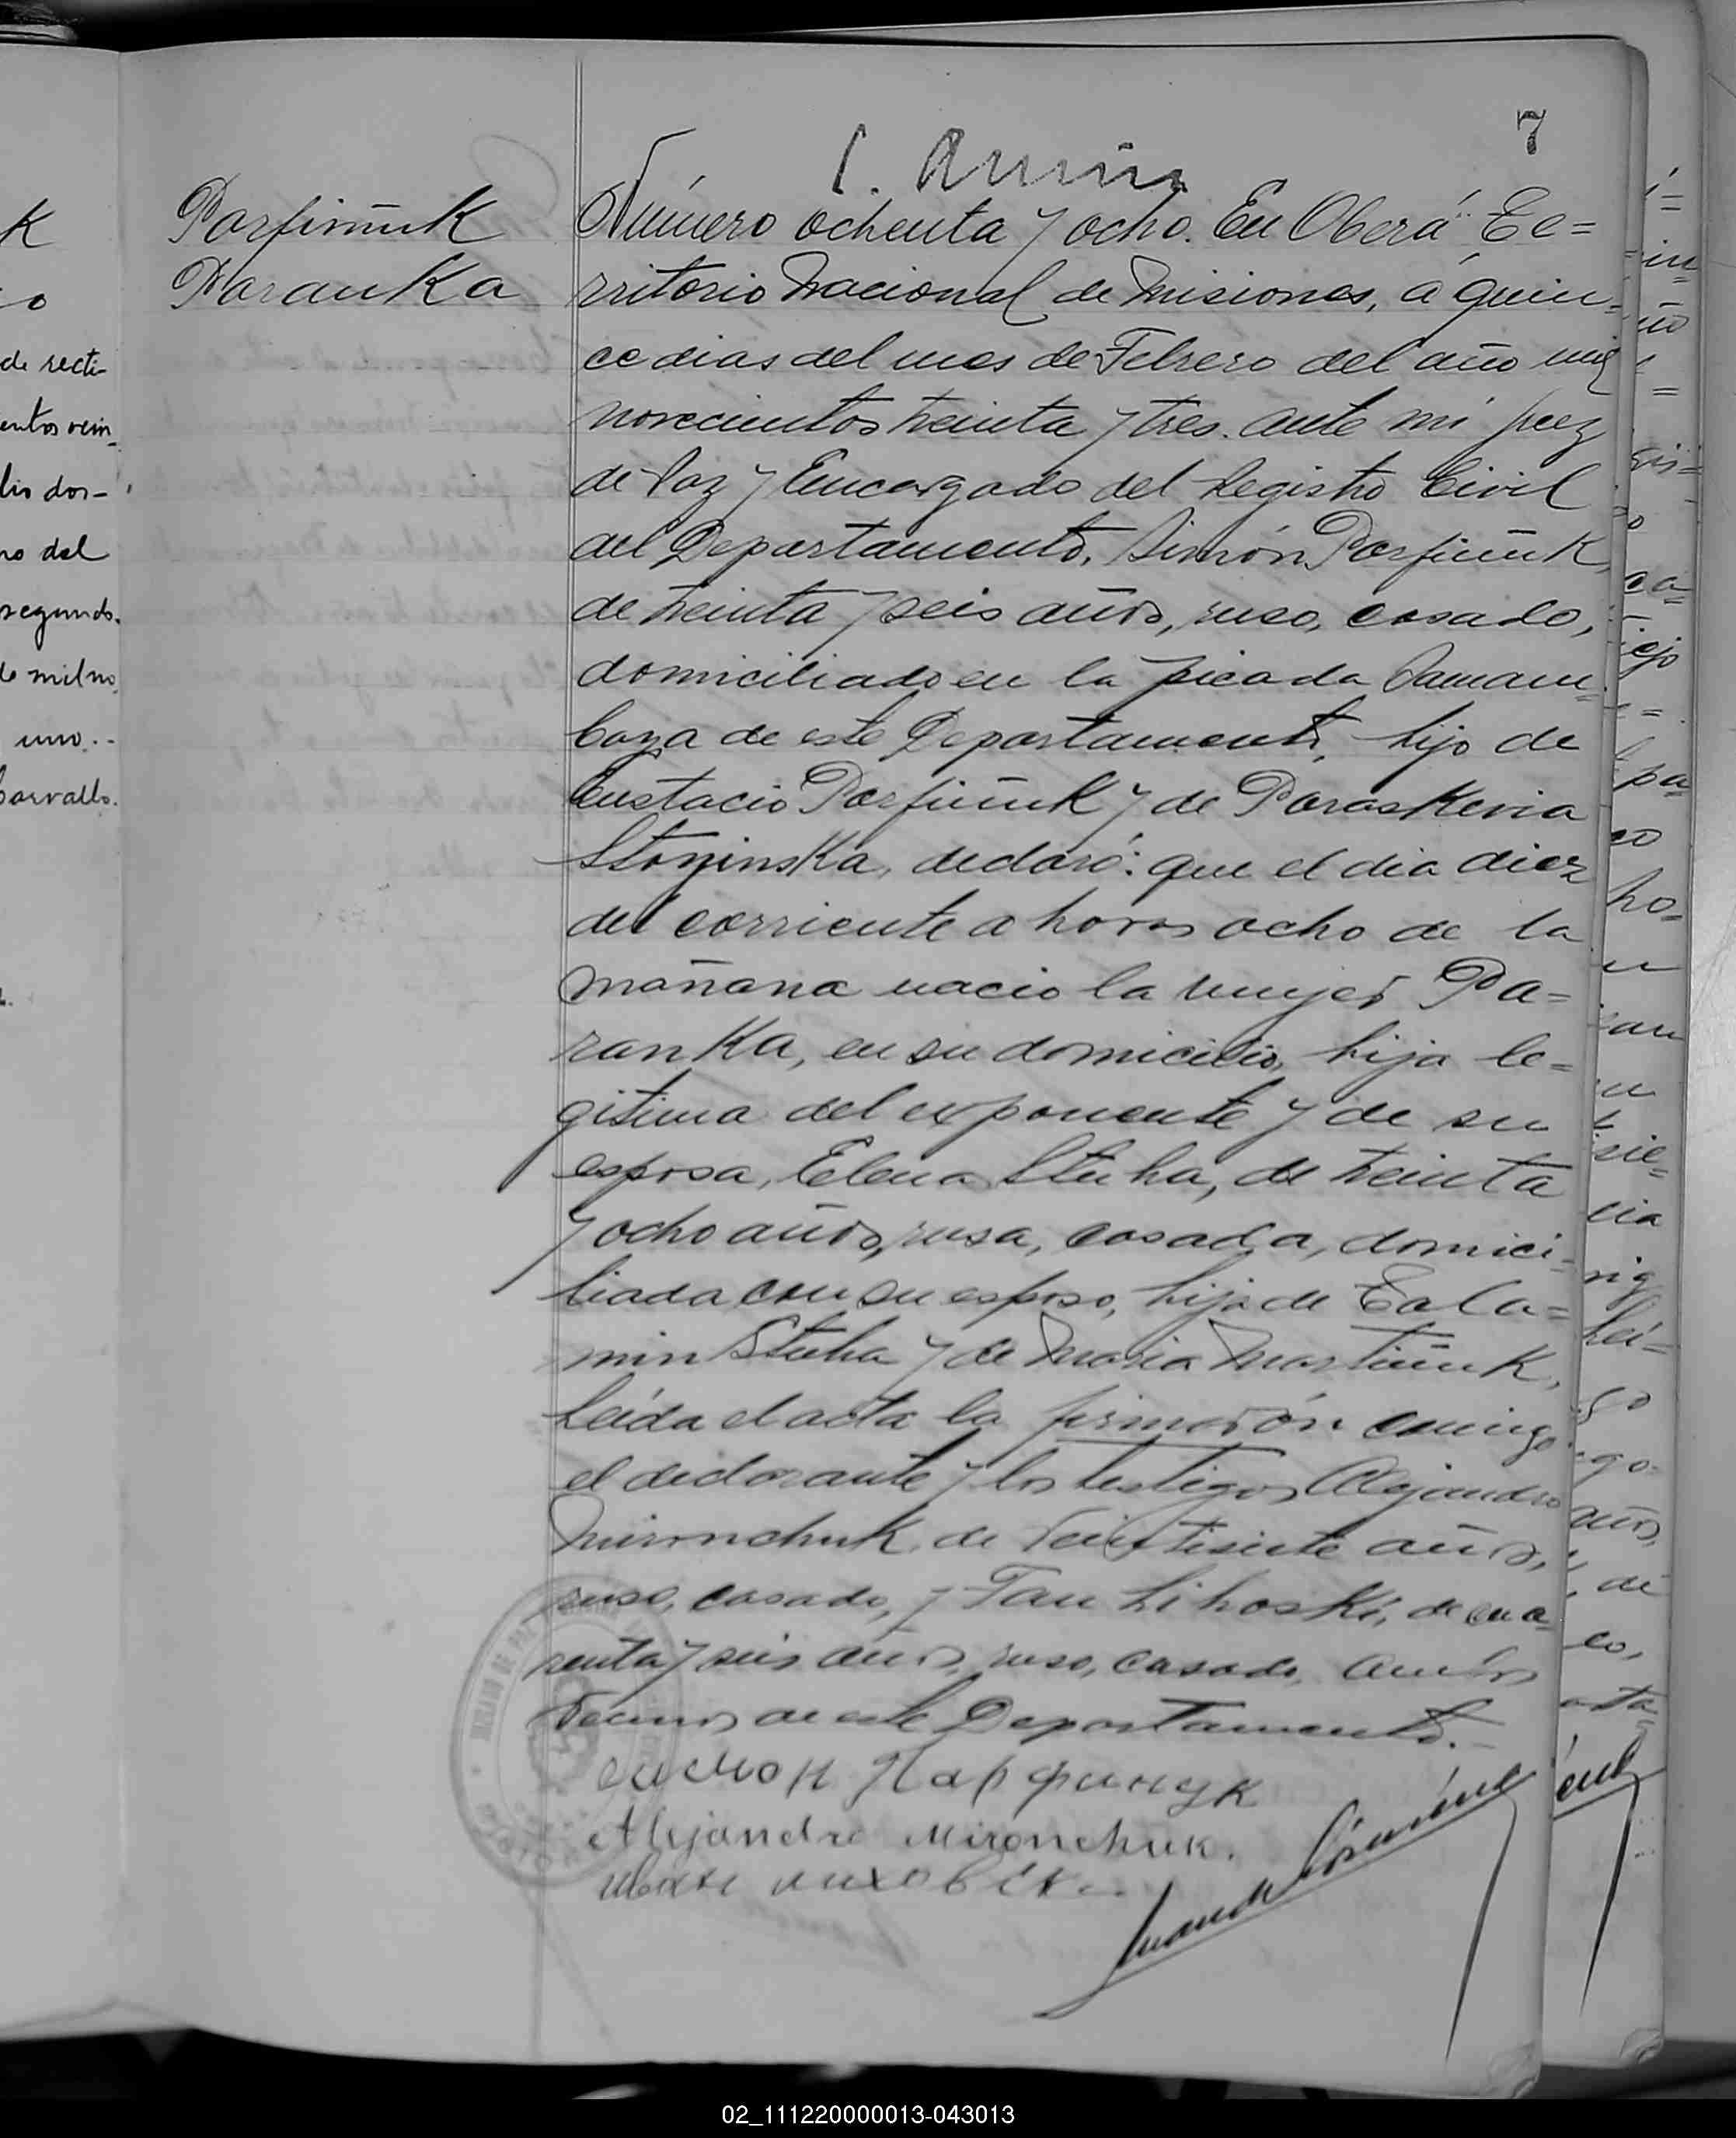 7
Parfiñuk
Paranka
Número ochenta y ocho. En Oberá Te=
rritorio Nacional de Misiones, á quin-
ce dias del mes de Febrero del año mil
novecientos treinta y tres. ante mi juez
de Paz y Encargado del Registro Civil
del Departamento, Simón Parfiñuk,
de treinta y seis años, ruso, casado,
domiciliado en la picada Samam=
baya de este Departamento, hijo de
Eustacio Parfiñuk y de Paraskevia
declaró: que el dia diez
del corriente a horas ocho de la
mañana nacio la mujer Pa=
ranka, en su domicilio, hija le=
gitima del exponente y de su
esposa, Elena Stuha, de treinta
y ocho años, rusa, casada, domici-
liada con su esposo, hija de Cala=
min Stuha y de Maria Martiñuk,
Leída el acta la firmarón conmigo
el declarante y los testigos Alejandro
Mironchuk, de veintisiete años,
ruso, casado, y Ian Lihoski, de cua=
renta y seis años, ruso, casado, ambos
vecinos de este Departamento.-
симон Парфинук
Alejandro Mironchuk.
иван
k
o
de recti-
entos vein-
lio dos-
ro del
segundo.
de mil no
uno.-